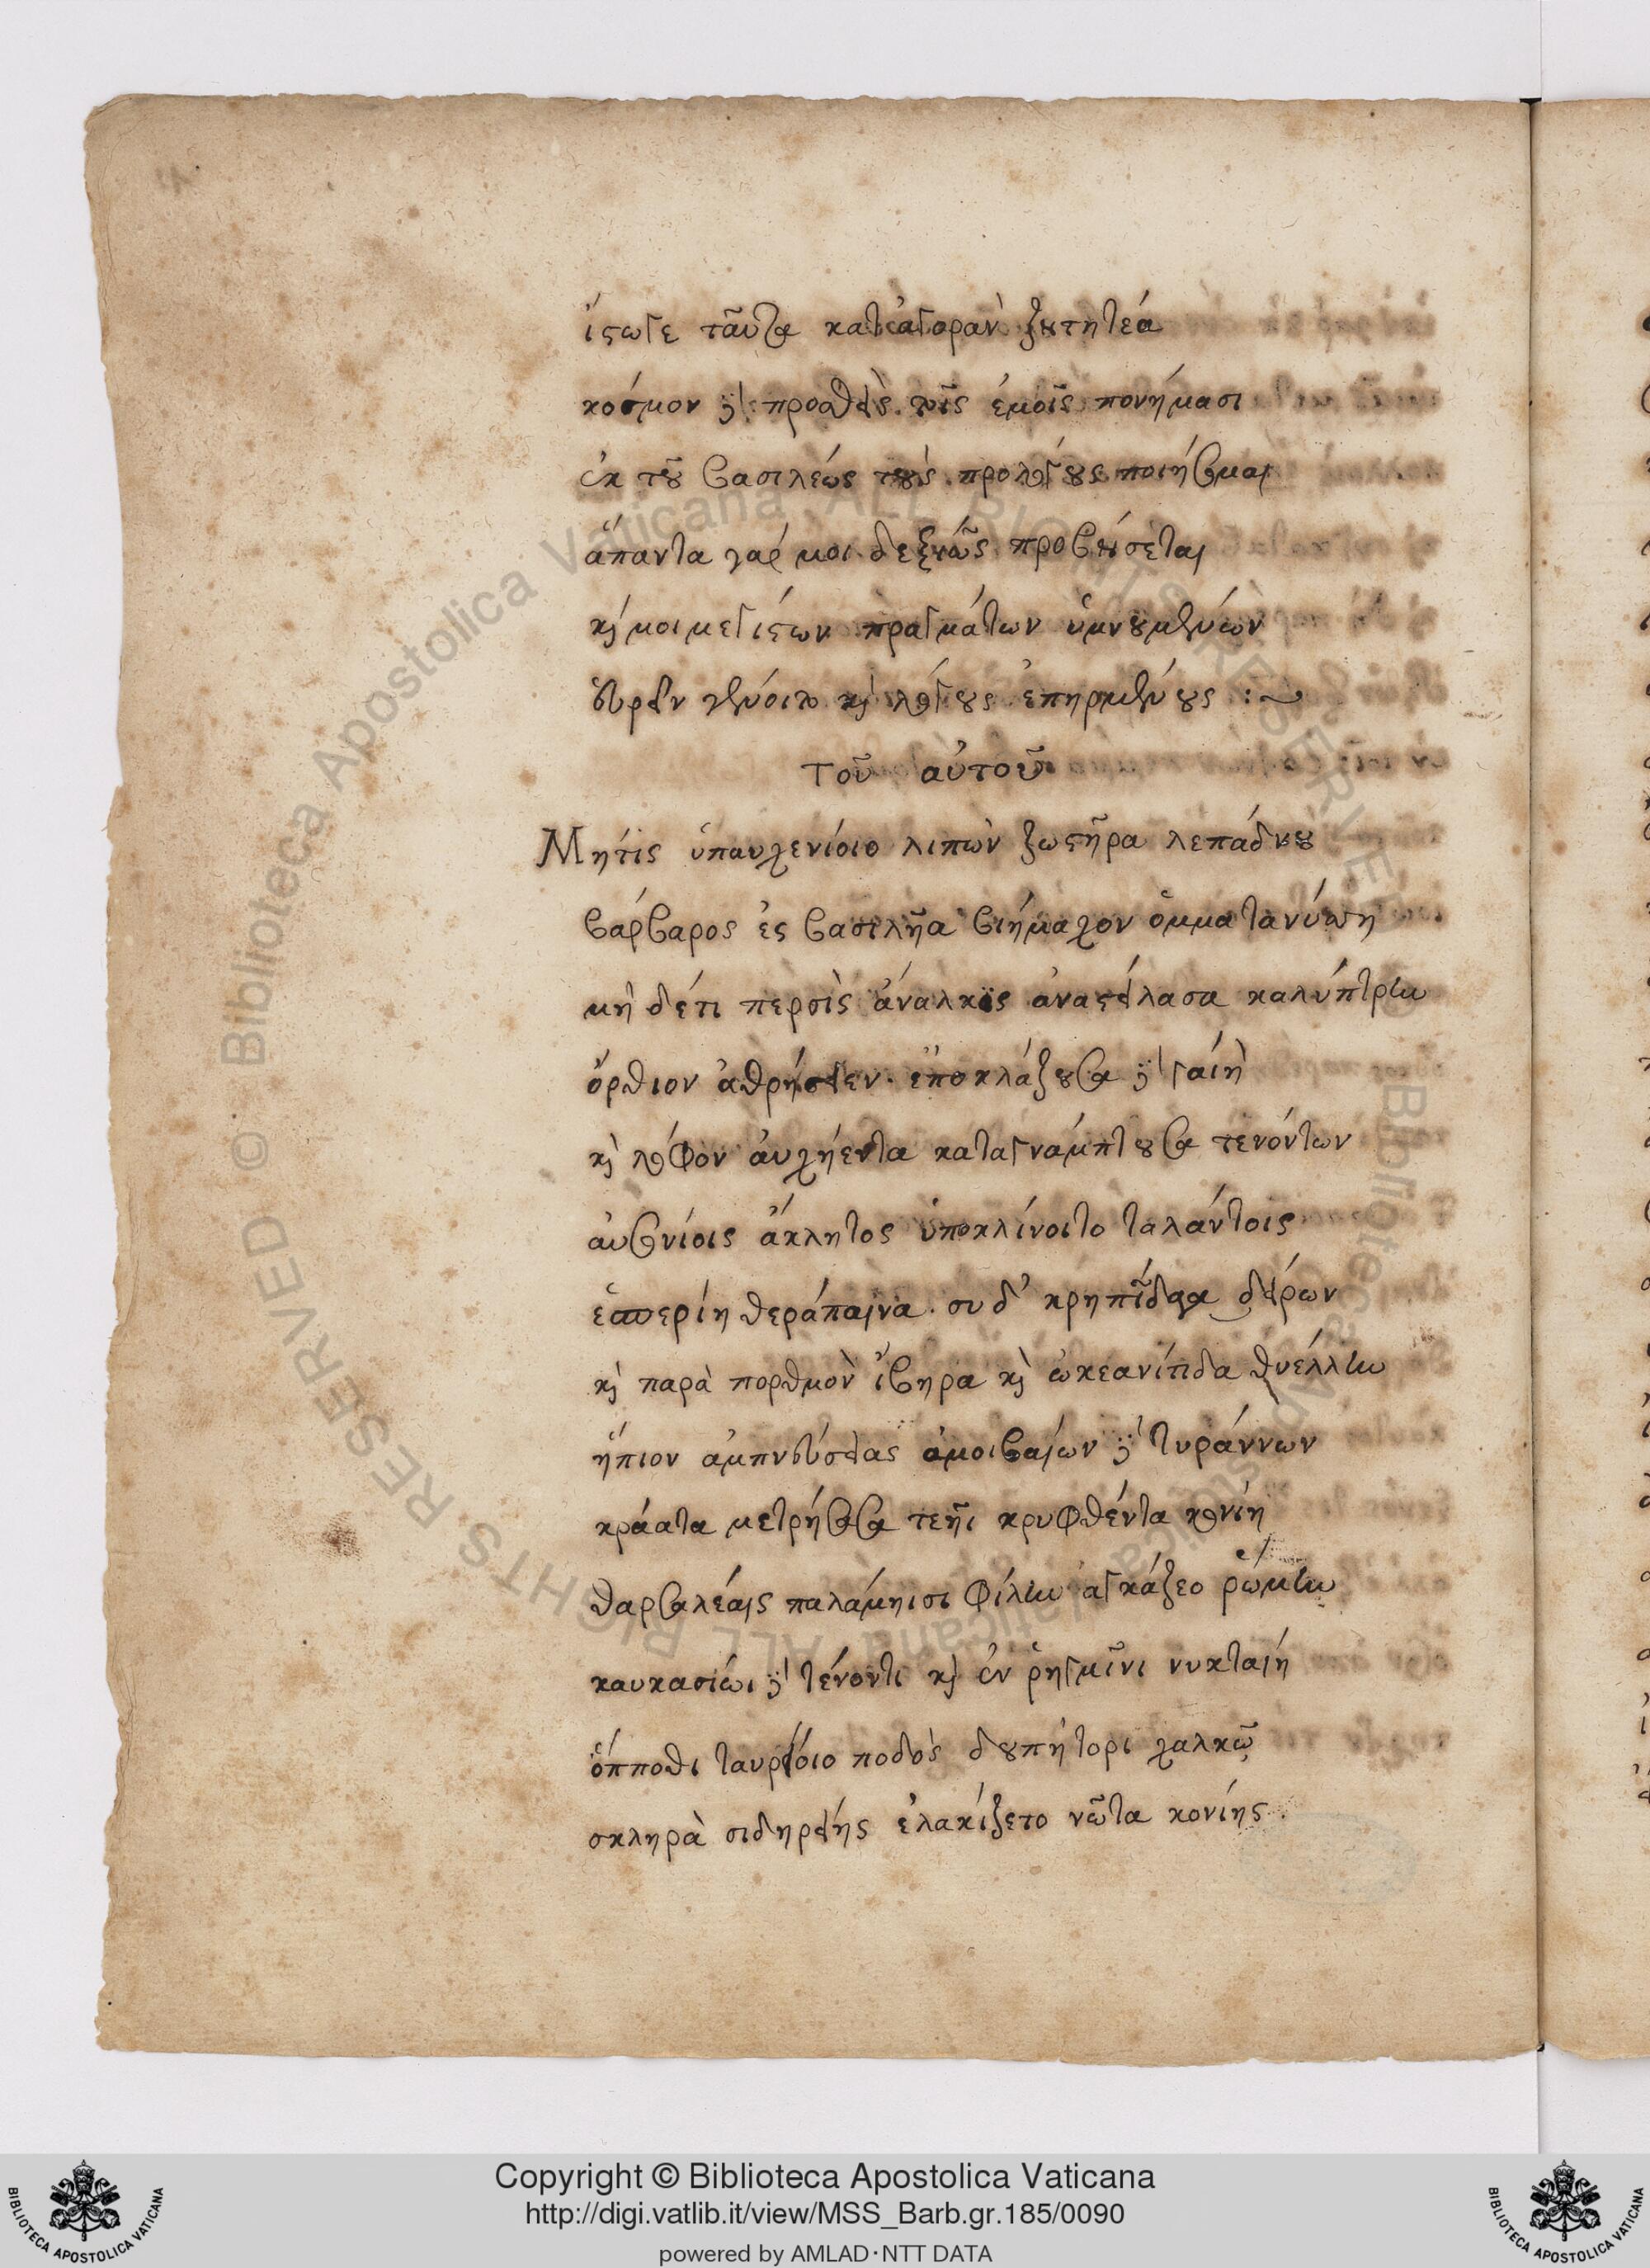 ἴστωγε ταῦτα κατ' ἀγορὰν ζητητέα
κόσμον δὲ προσθεὶς τοῖς ἐμοῖς πονήμασι
ἐκ τοῦ βασιλέως τοὺς προλόγους ποιήσομαι
ἅπαντα γάρ μοι δεξιῶς προβήσεται
καί μοι μεγίστων πραγμάτων ὑμνουμένων
εὑρεῖν γένοιτο καὶ λόγους ἐπηρμένους :~
Τοῦ αὐτοῦ
Μήτις ὑπαυχενίοιο λιπὼν ζωστῆρα λεπάδνου
βάρβαρος ἐς βασιλῆα βιήμαχον ὄμμα τανύσση
μὴ δ' ἔτι περσὶς ἄναλκις ἀναστείλασα καλύπτρην
ὄρθιον ἀθρήσειεν. ἐποκλάζουσα δὲ γαίη
καὶ λόφον αὐχήεντα καταγνάμπτουσα τενόντων
αὐσονίοις ἄκλητος ὑποκλίνοιτο ταλάντοις
ἑσπερίη θεράπαινα. συ δ' κρηπῖδα
καὶ παρὰ πορθμὸν ἴβηρα καὶ ὠκεανίτιδα θυέλλην
ἤπιον ἀμπνεύσειας ἀμοιβαίων δὲ τυράννων
κράατα μετρήσασα τεῆι κρυφθέντα κονίη
θαρσαλέαις παλάμηισι φίλην ἀγκάζεο ῥώμην
καυκασίωι δὲ τένοντι καὶ ἐν ῥηγμῖνι νυκταίη
ὅπποθι ταυρείοιο ποδὸς δουπήτορι χαλκῷ
σκληρὰ σιδηρείης ἐλακίζετο νῶτα κονίης.
Copyright © Biblioteca Apostolica Vaticana
http://digi.vatlib.it/view/MSS_Barb.gr.185/0090
powered by AMLAD·NTT DATA
BIBLIOTECA APOSTOLICA VATICANA
BIBLIOTECA APOSTOLICA VATICANA